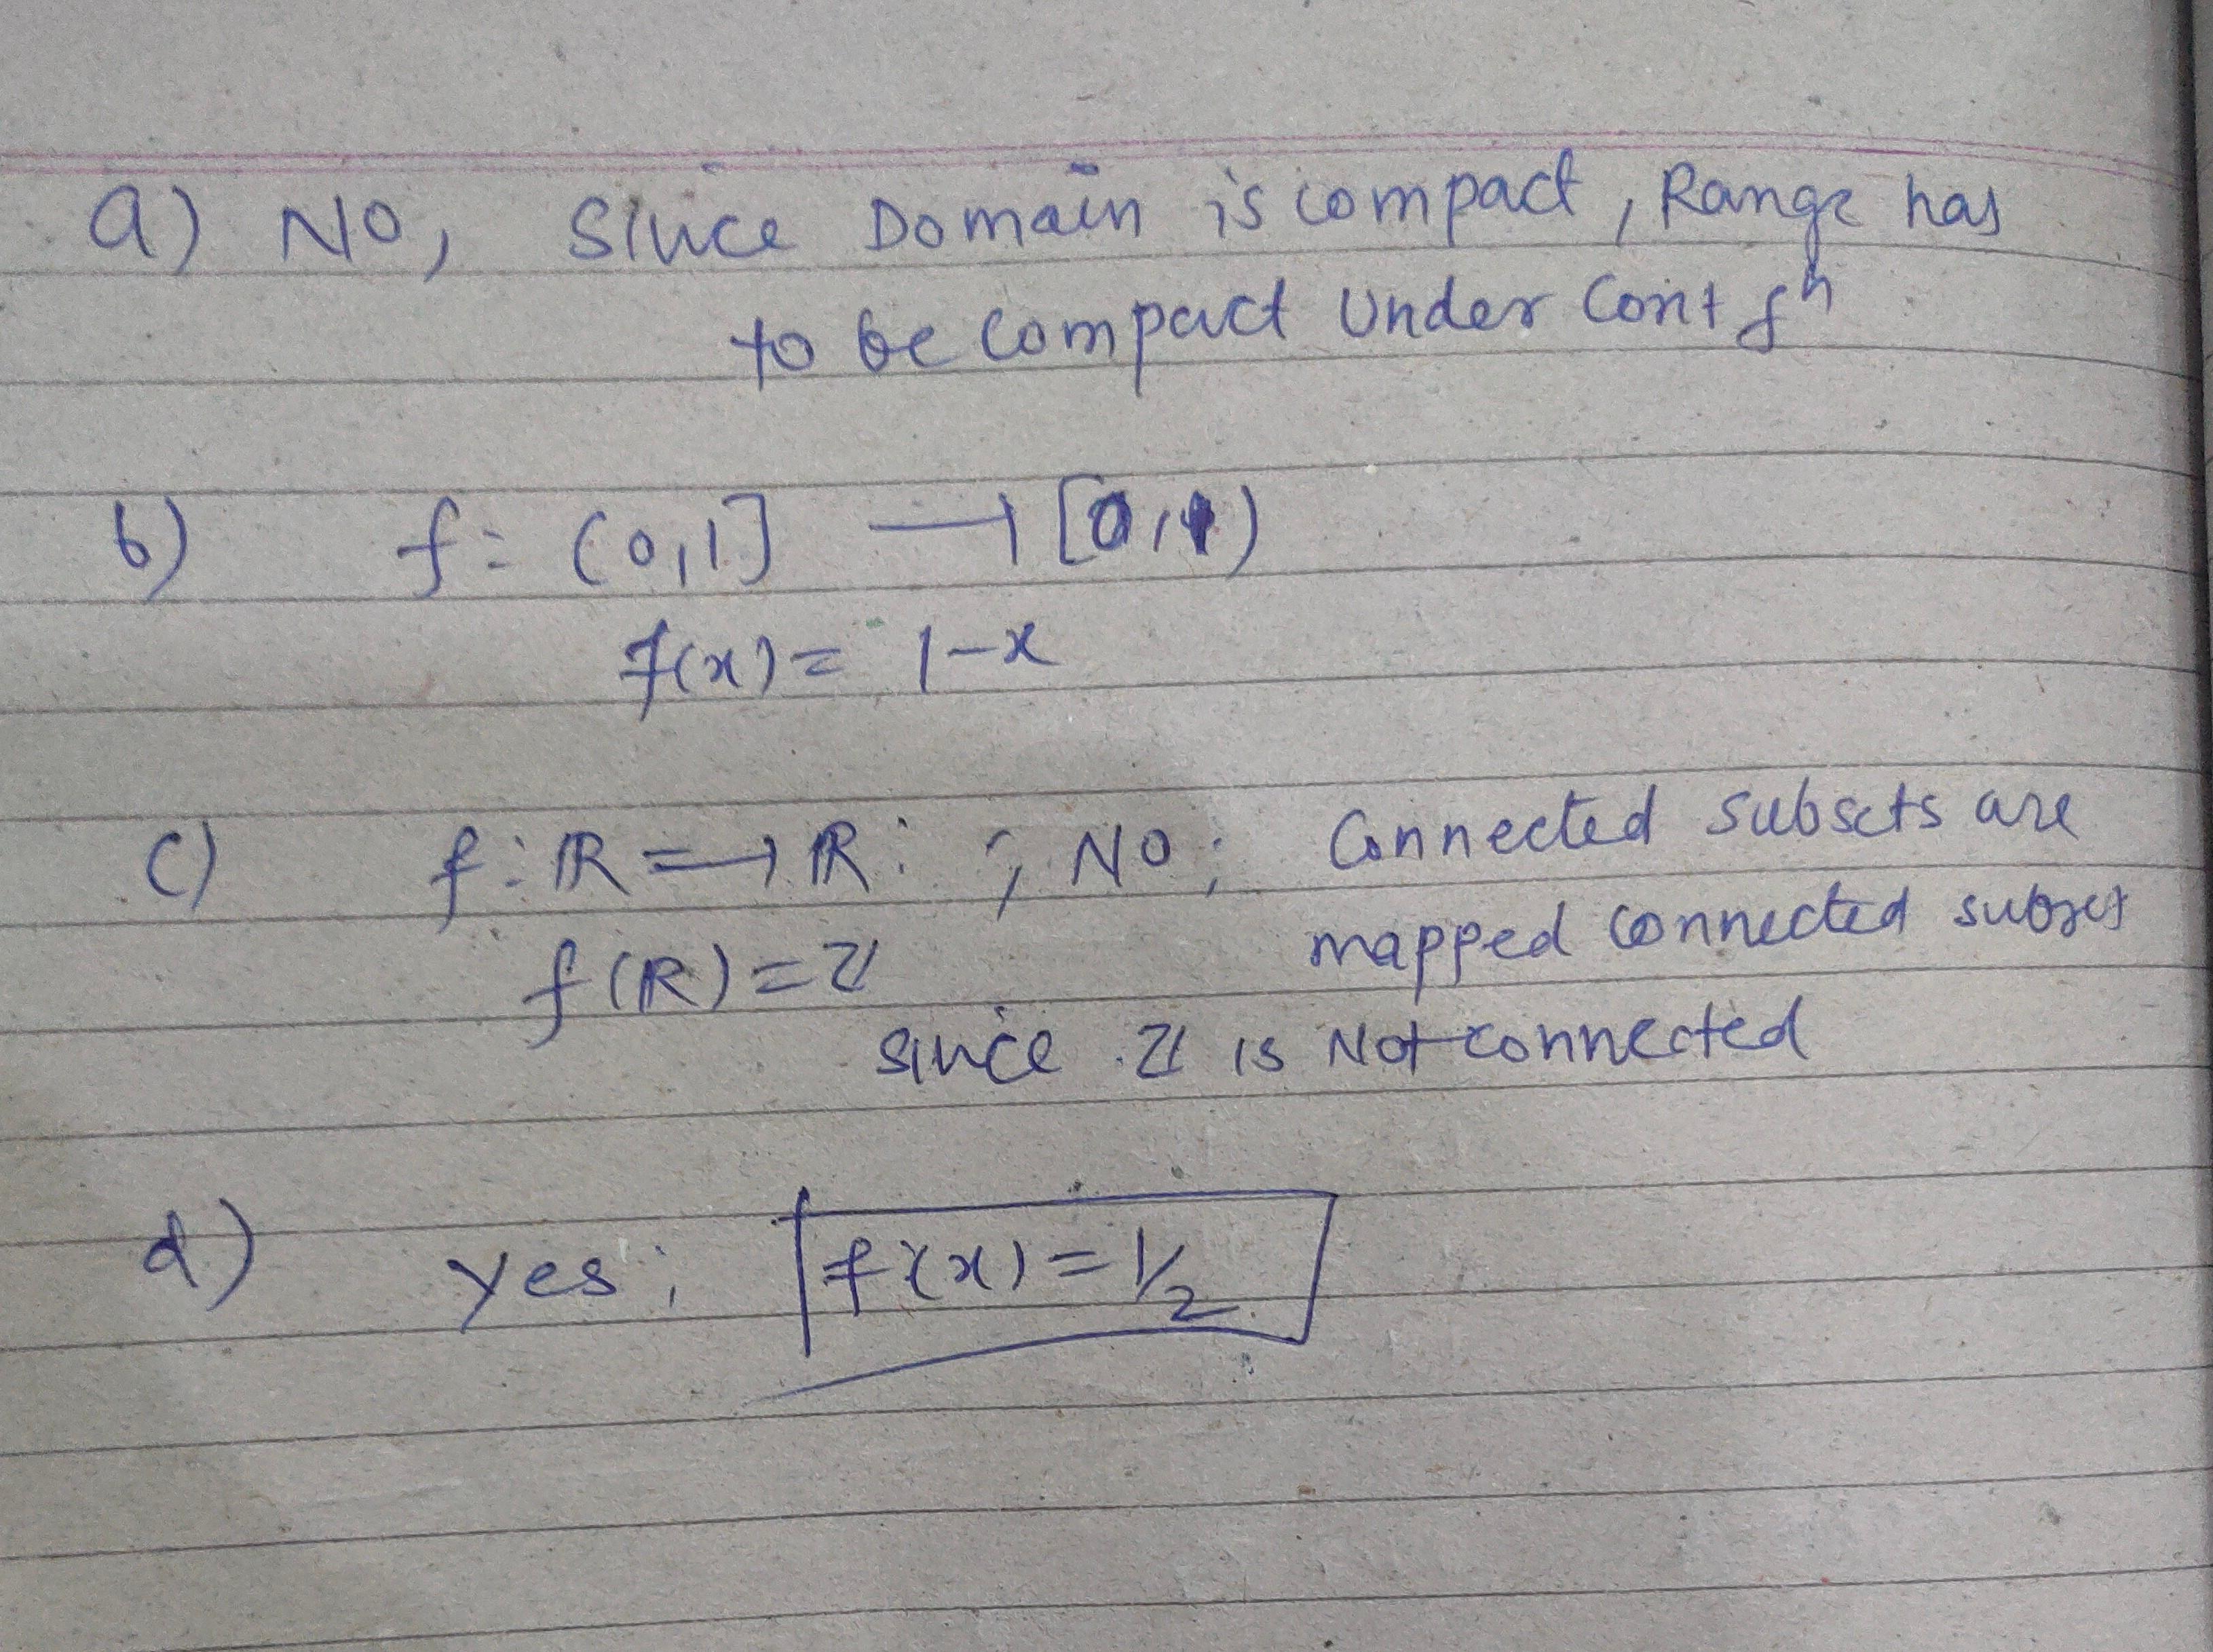 a) NO, Since Domain is compact, Range has
to be compact Under Cont fⁿ
b) f: (0,1] → [0,1)
f(x) = 1-x
c) f: ℝ → ℝ: ; NO; Connected subsets are
mapped connected subset
f(ℝ) = ℤ
since ℤ is Not connected
d) yes; f(x) = 1/2